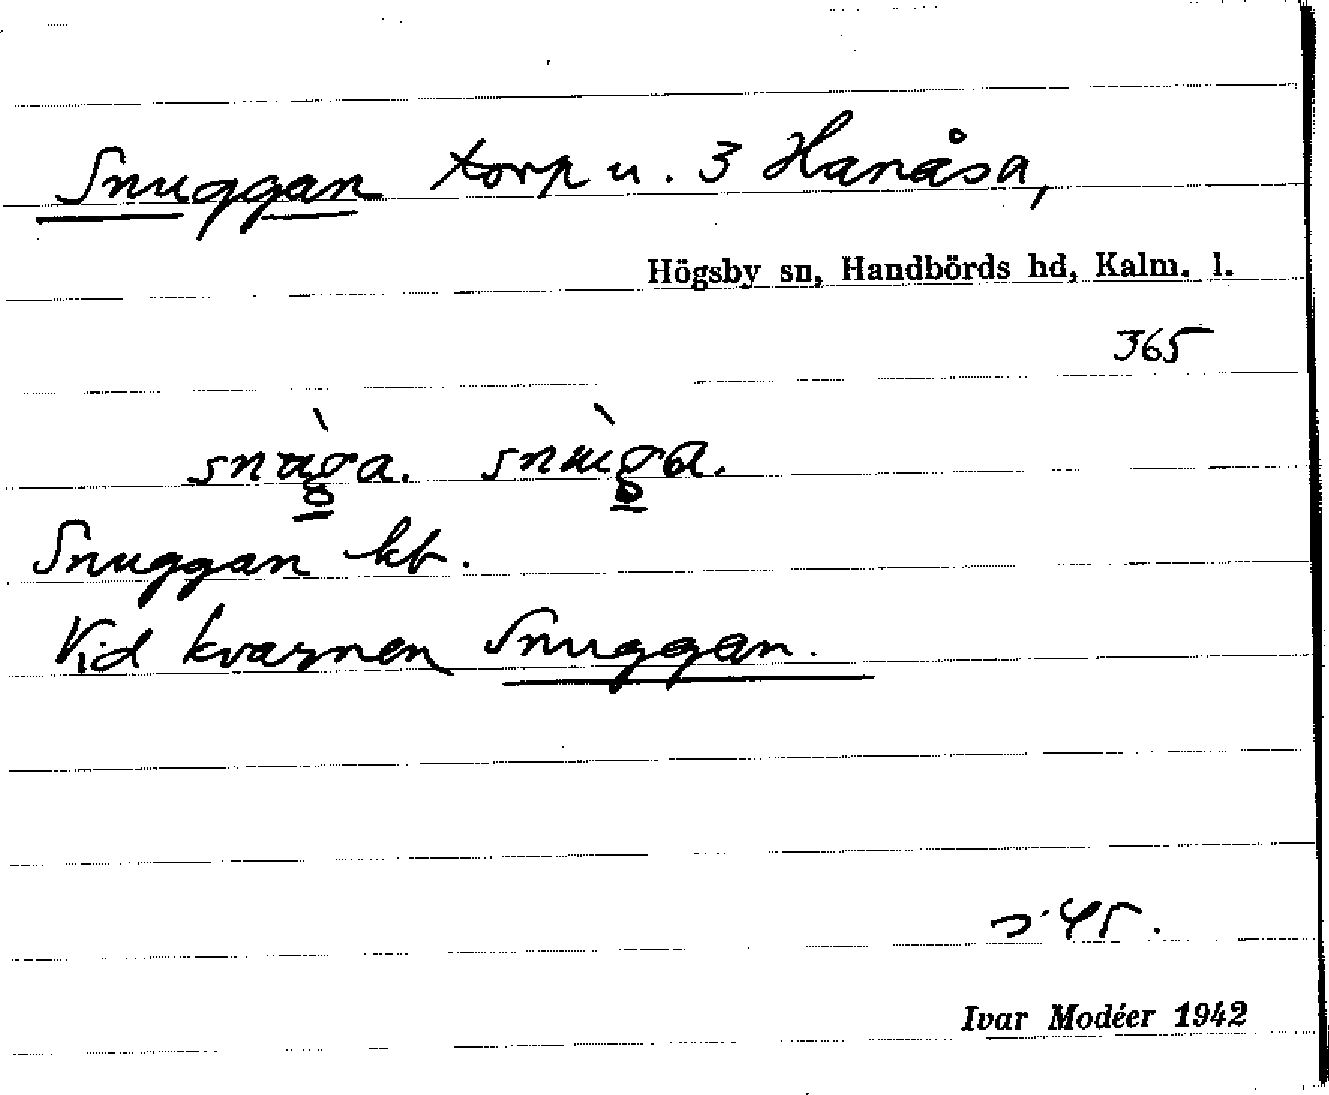 Snuggan torp u. 3 Hanåsa,
Högsby sn, Handbörds hd, Kalm. l.
365
Snuggan kb.
Vid kvarnen Snuggan.
Ivar Modéer 1942